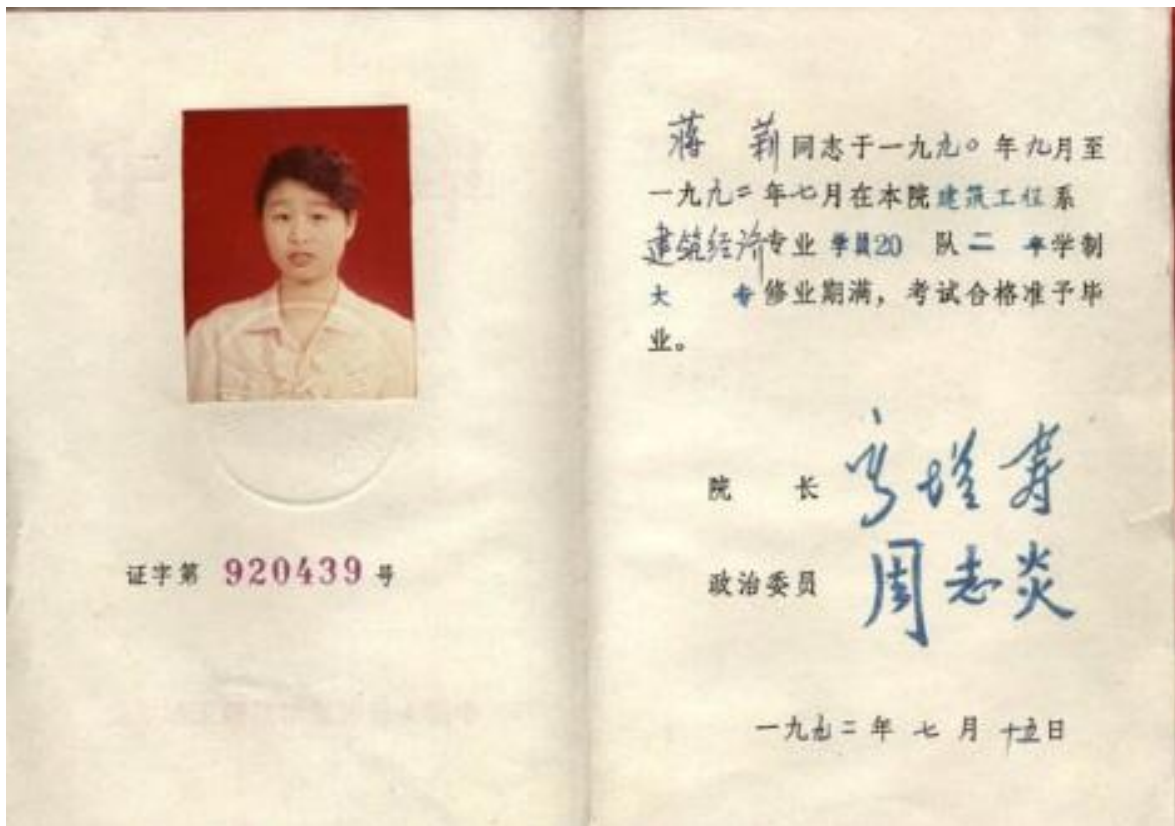 证字第 920439 号
蒋 莉同志于一九九〇年九月至
一九九二年七月在本院建筑工程系
建筑经济专业 学员20 队二 年学制
大 专修业期满，考试合格准予毕
业。
院 长 高增寿
政治委员 周志炎
一九九二年 七 月 十五日